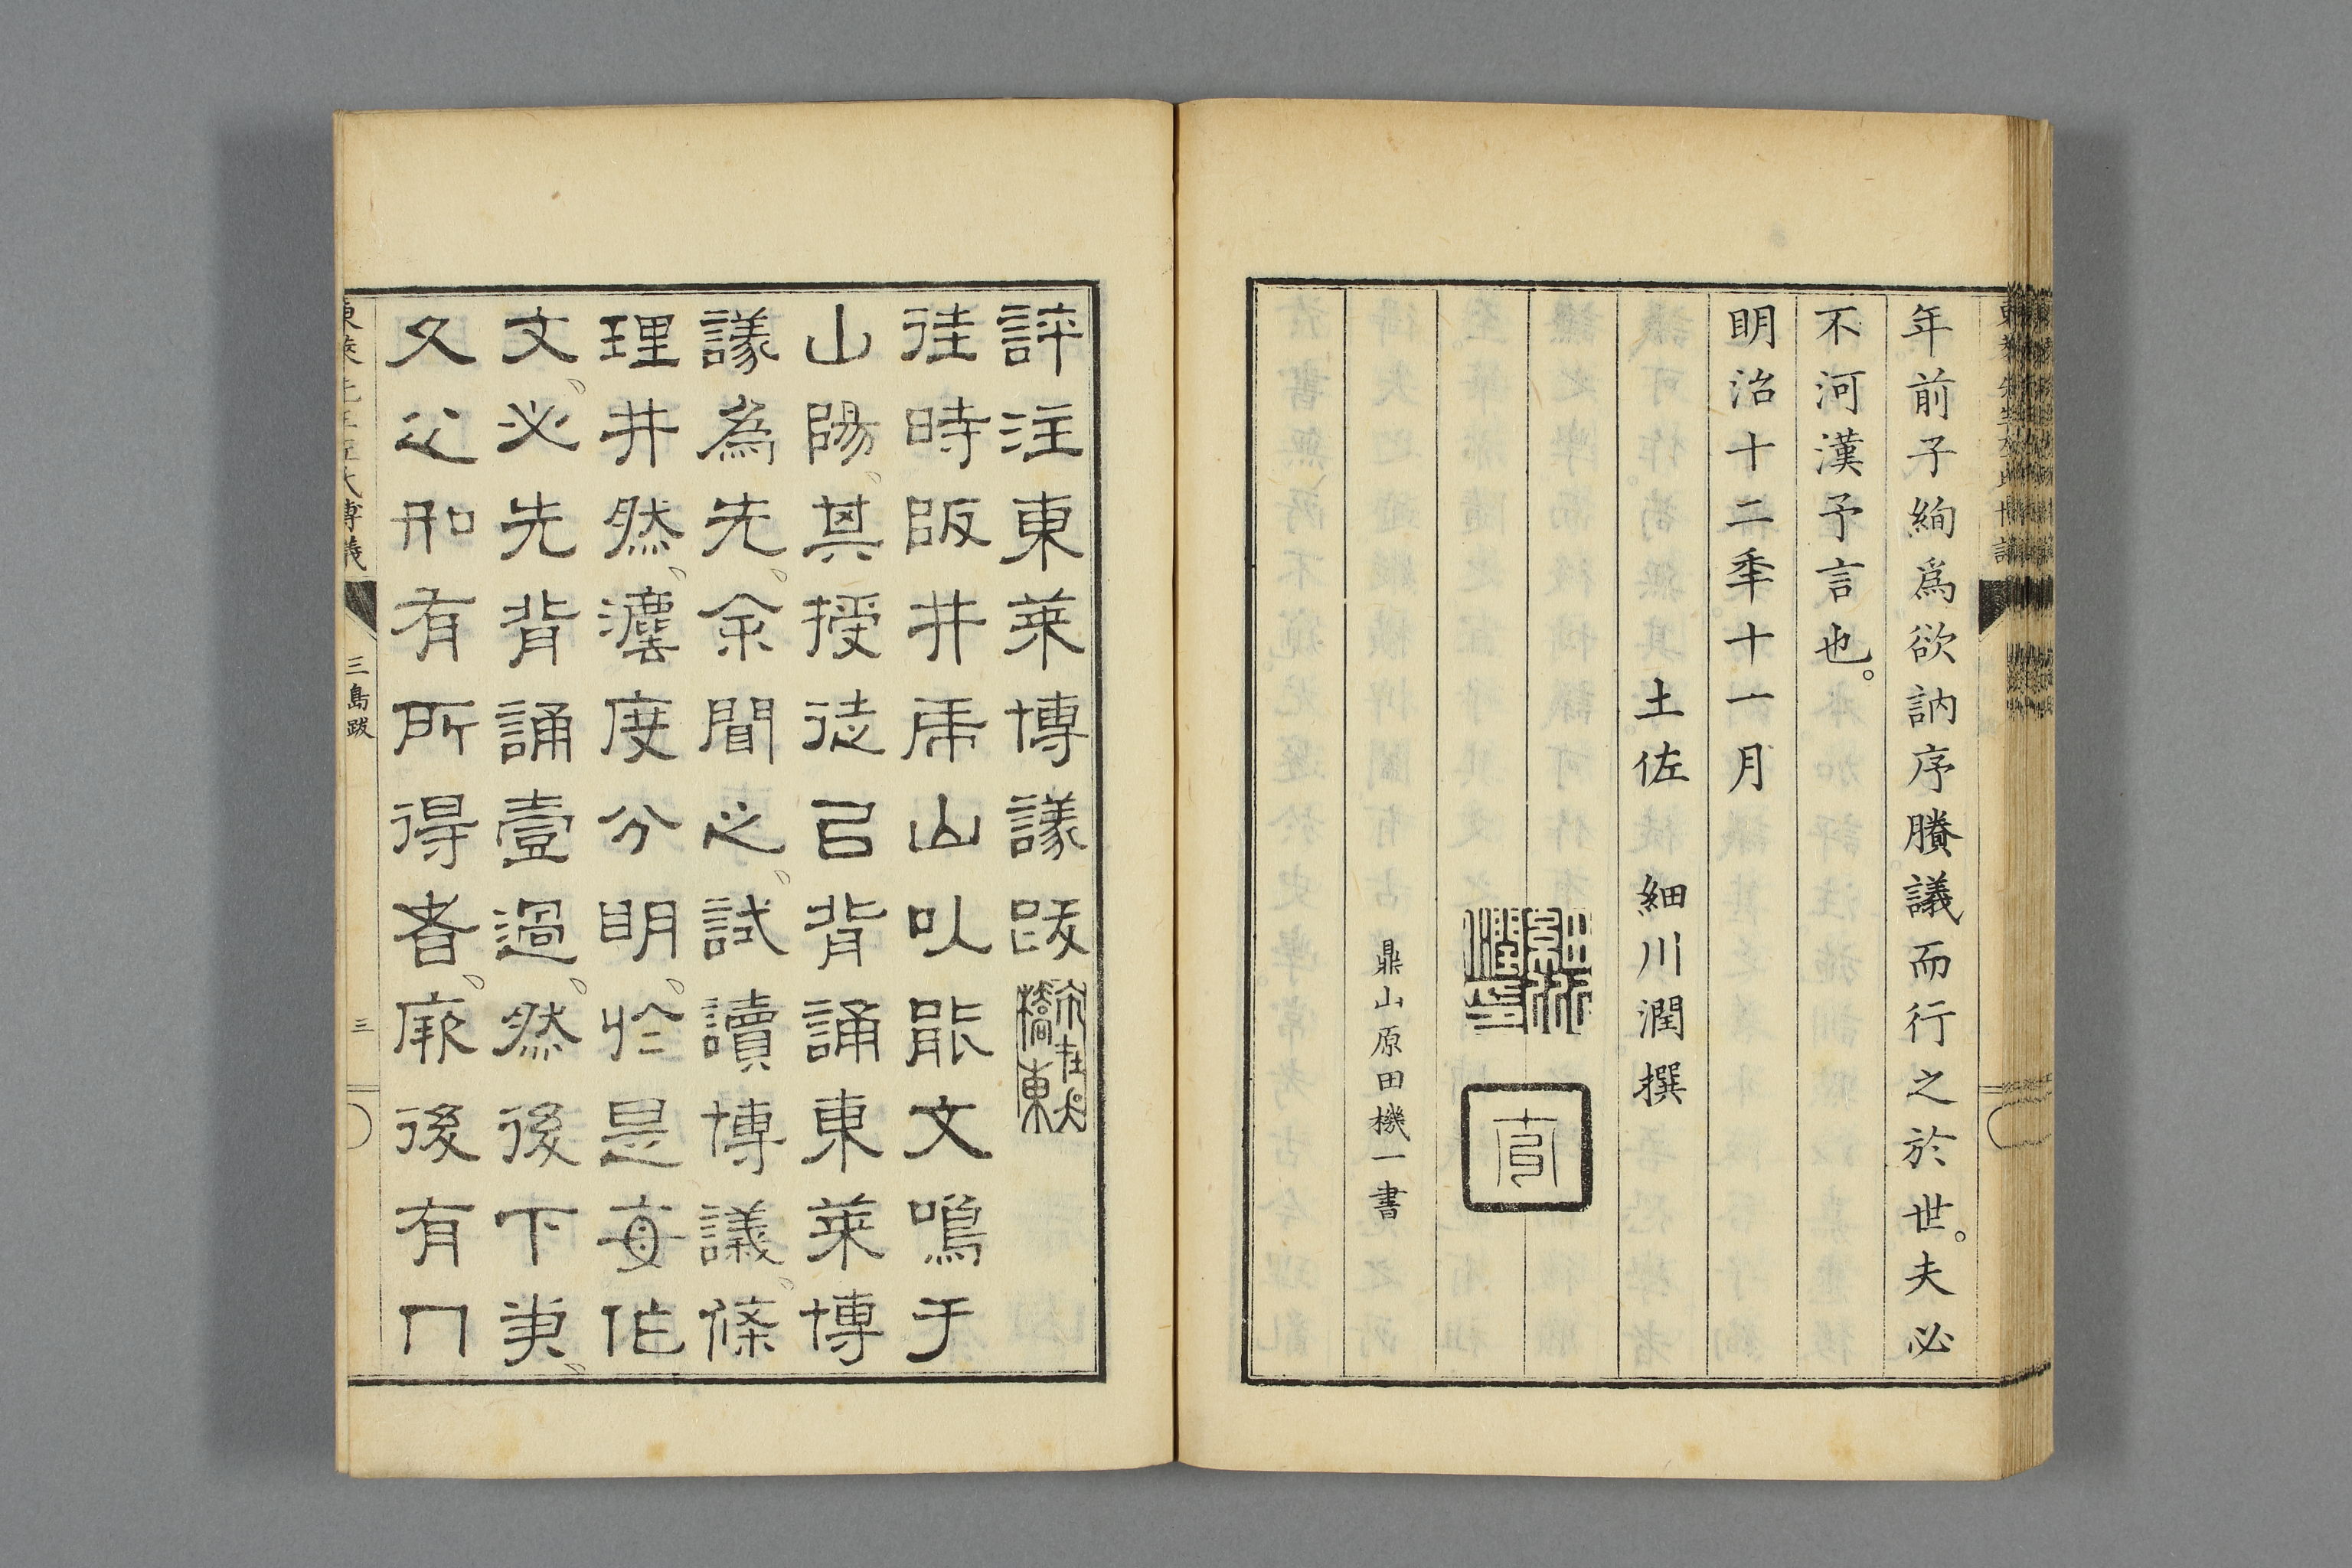 年前子絢爲欲訥序賸議而行之於世。夫必
不河漢予言也。
明治十二秊十一月
土佐 細川潤撰
鼎山原田機一書
評注東萊博議跋
往時阪井虎山以能文鳴于
山陽、其授徒、吕背誦東萊博
議為先、余聞之、試讀博議、條
理井然、灋度分明、於是每作
文、必先背誦壹過、然後下筆、
久之和有所得者、厥後有门
三島跋
三